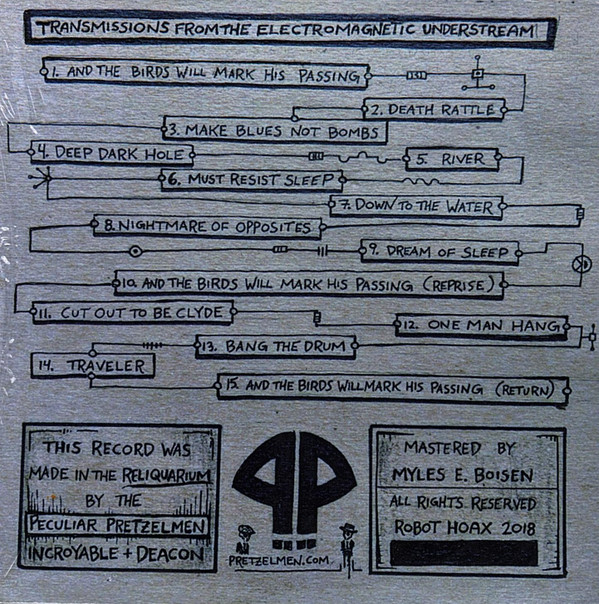 TRANSMISSIONS FROM THE ELECTROMAGNETIC UNDERSTREAM
1. AND THE BIRDS WILL MARK HIS PASSING
2. DEATH RATTLE
3. MAKE BLUES NOT BOMBS
4. DEEP DARK HOLE
5. RIVER
6. MUST RESIST SLEEP
7. DOWN TO THE WATER
8. NIGHTMARE OF OPPOSITES
9. DREAM OF SLEEP
10. AND THE BIRDS WILL MARK HIS PASSING (REPRISE)
11. CUT OUT TO BE CLYDE
12. ONE MAN HANG
13. BANG THE DRUM
14. TRAVELER
15. AND THE BIRDS WILL MARK HIS PASSING (RETURN)
THIS RECORD WAS
MADE IN THE RELIQUARIUM
BY THE
PECULIAR PRETZELMEN
INCROYABLE + DEACON
PRETZELMEN.COM
MASTERED BY
MYLES E. BOISEN
ALL RIGHTS RESERVED
ROBOT HOAX 2018